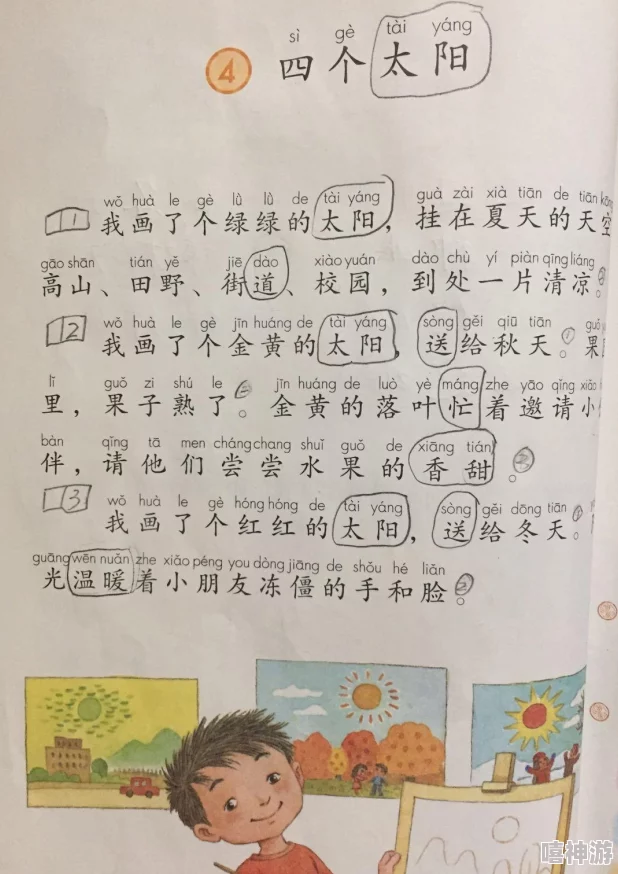 sì gè tài yáng
4 四个太阳
wǒ huà le gè lǜ lǜ de tài yáng guà zài xià tiān de tiān kōng
1 我画了个绿绿的太阳，挂在夏天的天空
gāo shān tián yě jiē dào xiào yuán dào chù yí piàn qīng liáng
高山、田野、街道、校园，到处一片清凉。
wǒ huà le gè jīn huáng de tài yáng sòng gěi qiū tiān
2 我画了个金黄的太阳，送给秋天。①果
lǐ guǒ zi shú le jīn huáng de luò yè máng zhe yāo qǐng xiǎo
里，果子熟了。金黄的落叶忙着邀请小
bàn qǐng tā men cháng chang shuǐ guǒ de xiāng tián
伴，请他们尝尝水果的香甜。
wǒ huà le gè hóng hóng de tài yáng sòng gěi dōng tiān
3 我画了个红红的太阳，送给冬天。
guāng wēn nuǎn zhe xiǎo péng you dòng jiāng de shǒu hé liǎn
光温暖着小朋友冻僵的手和脸。②
嘻神游